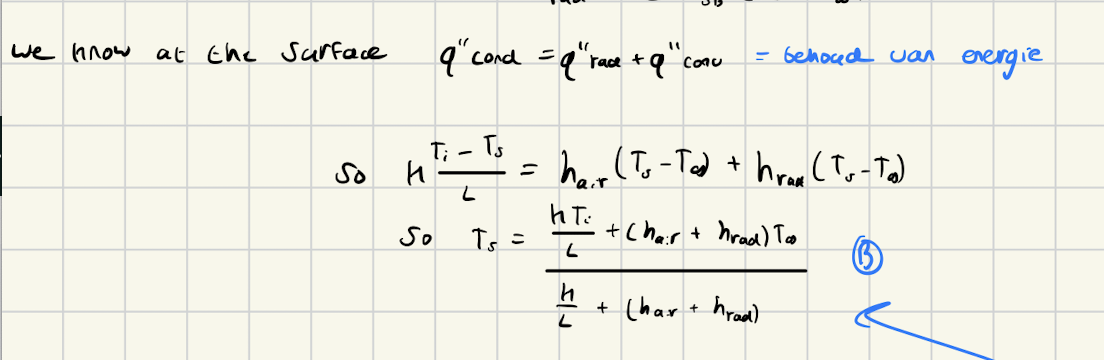 we know at the surface q"cond = q"rad + q"conv = behoud van energie
so k (Ti - Ts)/L = hair (Ts - T∞) + hrad (Ts - T∞)
so Ts = (k Ti/L + (hair + hrad) T∞) / (k/L + (hair + hrad))
B